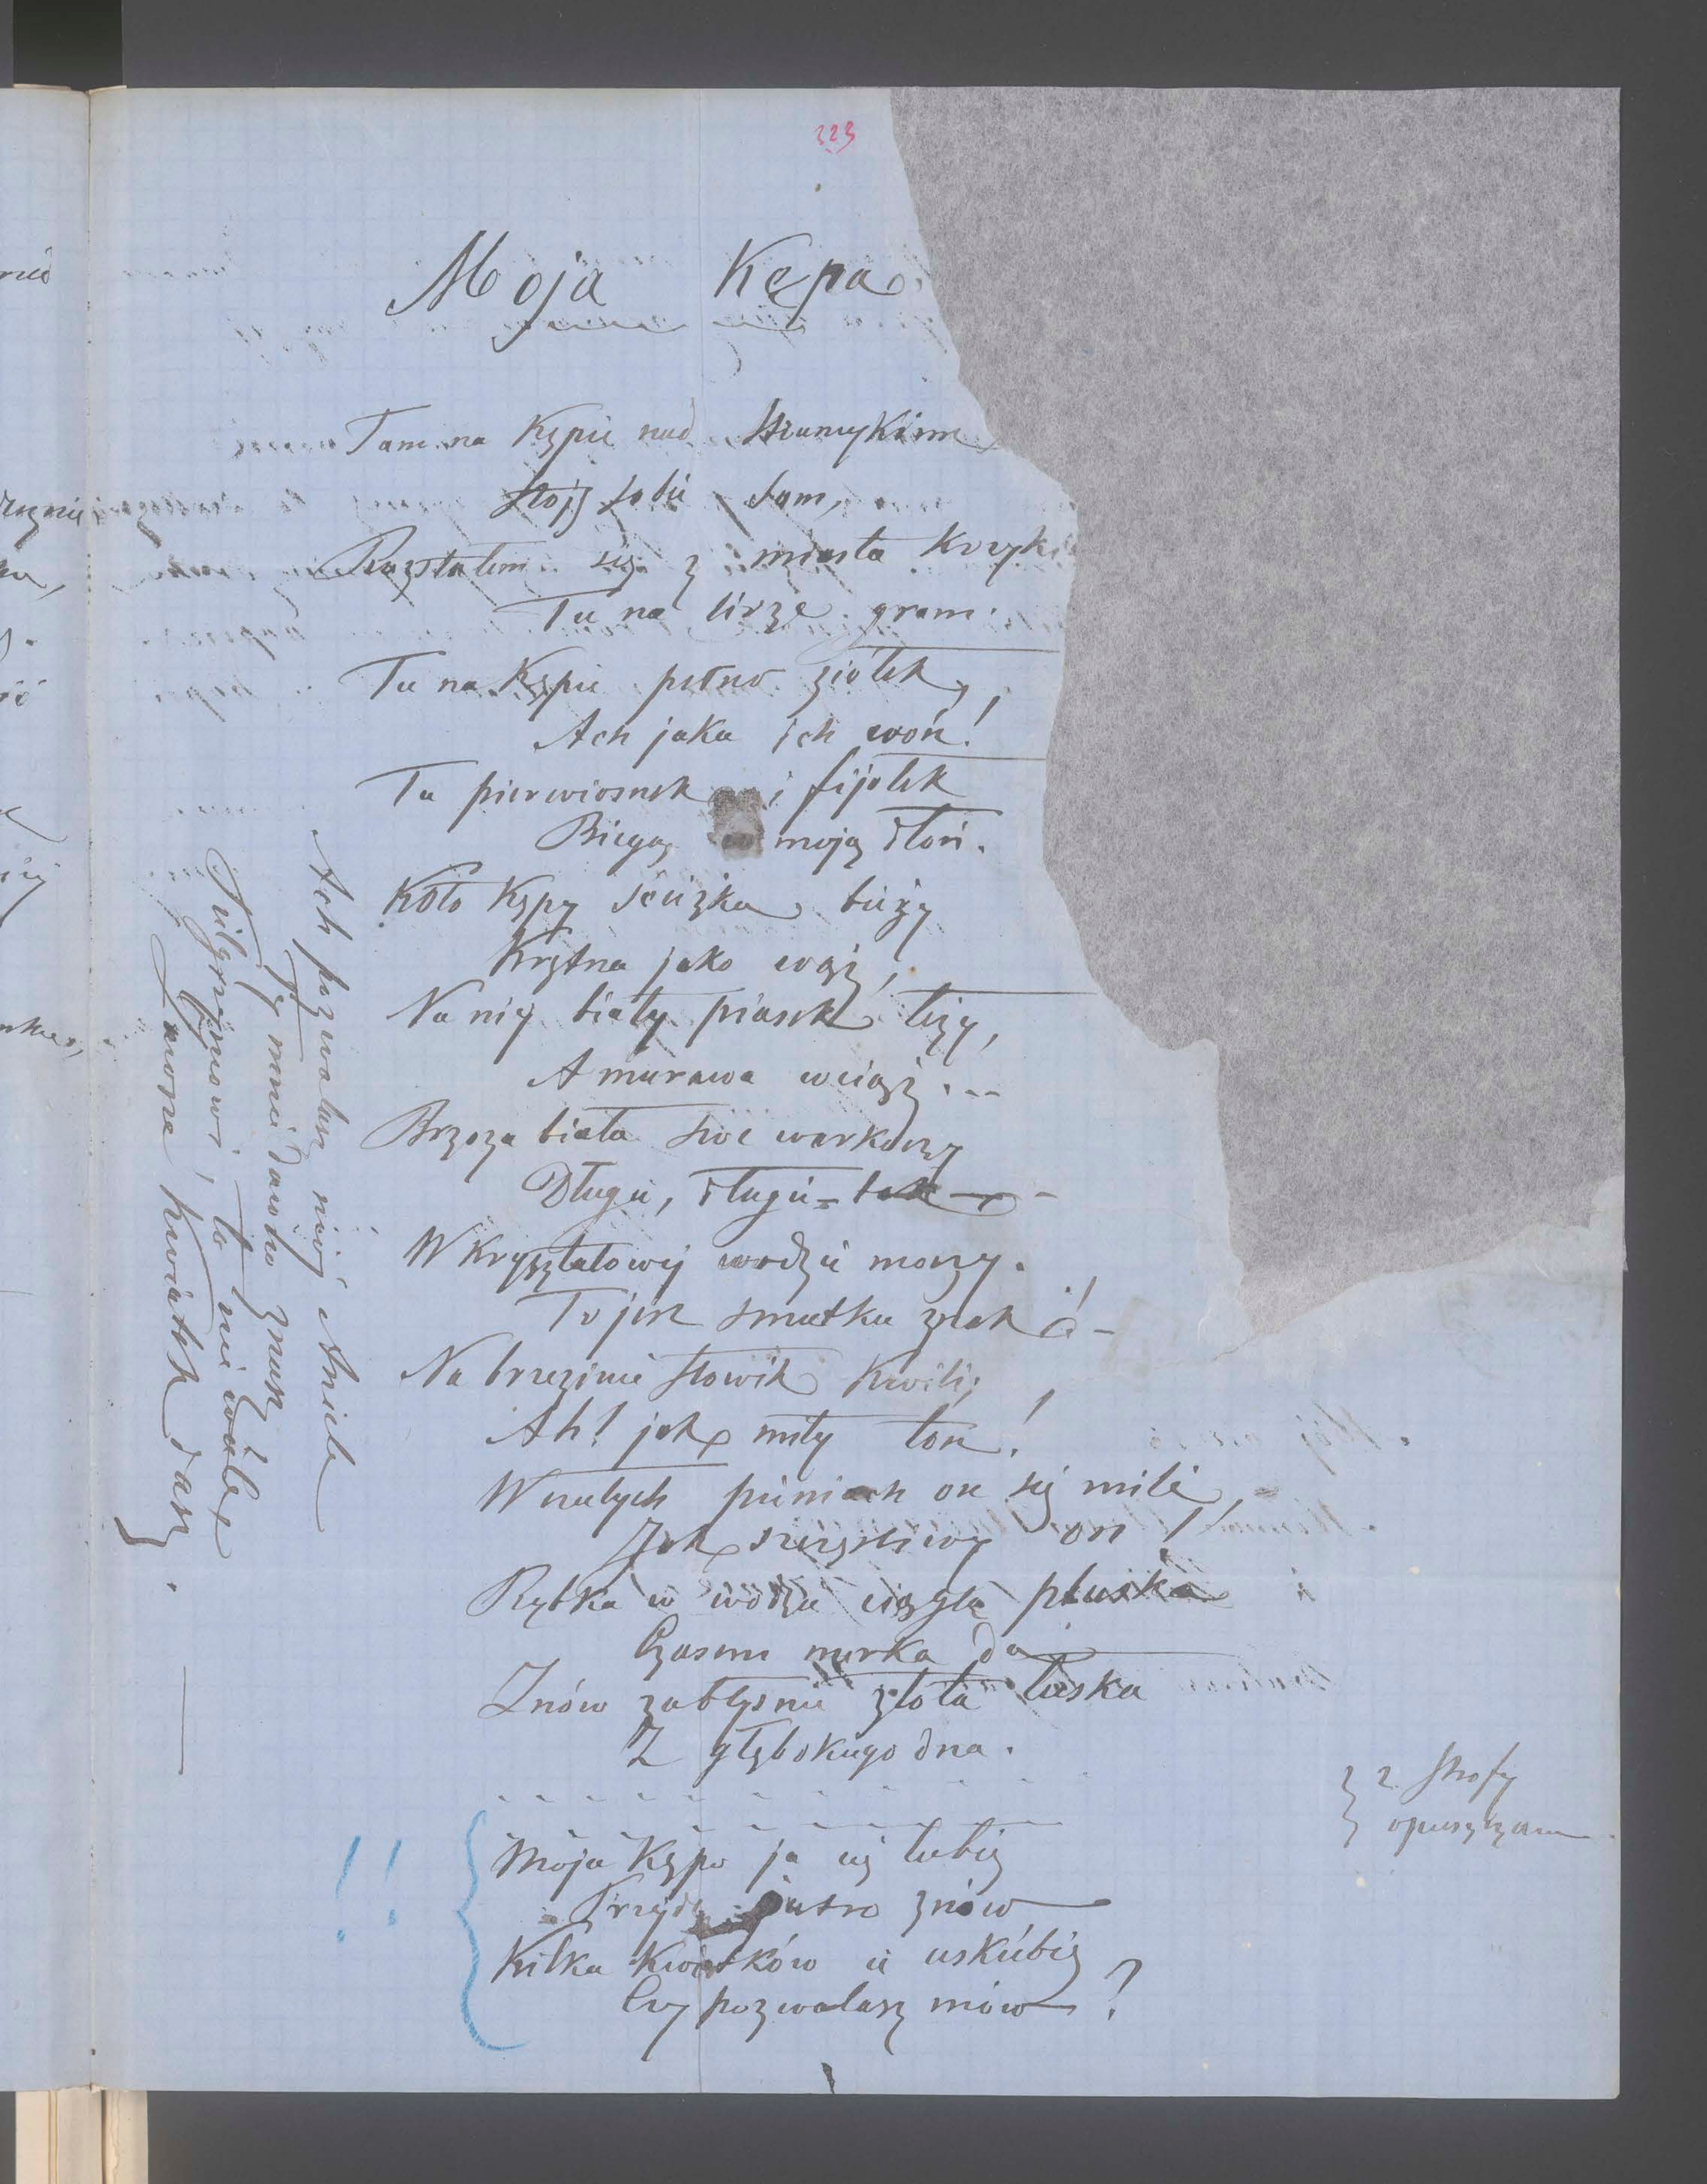 223
Moja Kępa
Tam na Kępie nad strumykiem
Stoję sobie sam,
Rozstałem się z miasta krzyki
Tu na lirze gram.
Tu na Kępie pełno ziółek,
Ach jaka ich woń!
Tu pierwiosnek i fijołek
Biegą moją dłoń.
Koło Kępy ścieżka bieży
Krętna jako wąż,
Na niej biały piasek leży,
A murawa wciąż...
Brzoza biała swe warkoczy
Długie, długie – tak –
W Kryształowej wodzie moczy.
To jest smutku znak! –
Na brzezinie słowik kwili;
Ah! jak miły ton!
W czułych pieniach on się mili,
Jak szczęśliwy on!
Rybka w wodzie ciągle pluska
Czasem nurka da
Znów zabłyśnie złota łuska
Z głębokiego dna.
2 strofy
opuszczam
!! Moja Kępo ja cię lubię
Przyjdę jutro znów
Kilka kwiatków ci uskubię
Czy pozwalasz mów?
Ach pozwalasz mój Aniele
Ty mnie dawno znasz
Pielgrzymowi, to nie wiele
kwiatek dasz.